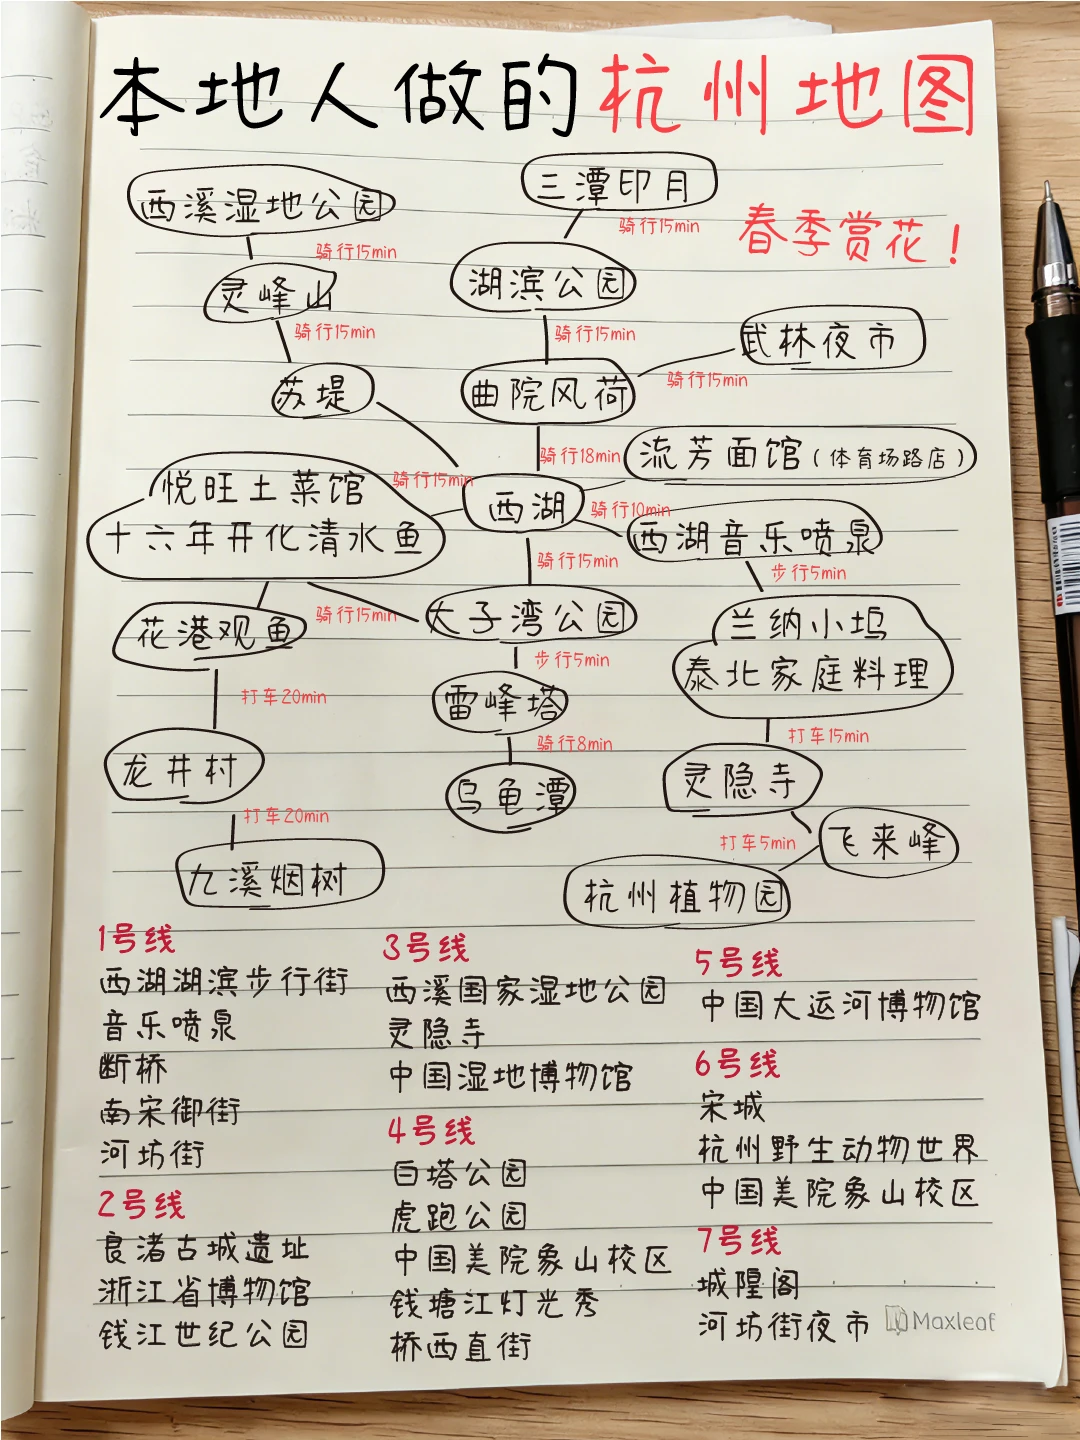 本地人做的杭州地图
春季赏花！
西溪湿地公园
骑行15min
灵峰山
骑行15min
苏堤
骑行15min
三潭印月
骑行15min
湖滨公园
骑行15min
曲院风荷
武林夜市
骑行15min
骑行18min
流芳面馆（体育场路店）
西湖
骑行10min
西湖音乐喷泉
步行5min
悦旺土菜馆
十六年开化清水鱼
骑行15min
骑行15min
花港观鱼
太子湾公园
兰纳小坞
泰北家庭料理
打车20min
步行5min
雷峰塔
骑行8min
乌龟潭
打车15min
龙井村
打车20min
九溪烟树
灵隐寺
打车5min
飞来峰
杭州植物园
1号线
西湖湖滨步行街
音乐喷泉
断桥
南宋御街
河坊街
2号线
良渚古城遗址
浙江省博物馆
钱江世纪公园
3号线
西溪国家湿地公园
灵隐寺
中国湿地博物馆
4号线
白塔公园
虎跑公园
中国美院象山校区
钱塘江灯光秀
桥西直街
5号线
中国大运河博物馆
6号线
宋城
杭州野生动物世界
中国美院象山校区
7号线
城隍阁
河坊街夜市
Maxleaf